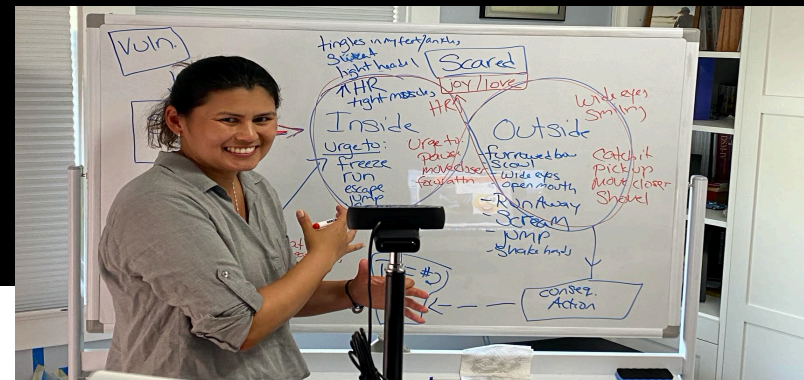 Vuln.
tingles in my feet/ankls,
Sweat
light head
↑HR
tight muscles
Scared
joy/love
HR↑
Wide eyes
Smiling
Inside
Urge to:
freeze
run
escape
jump
Urge to:
pause
move closer
Outside
- furrowed brow
- Scowl
- Wide eyes
open mouth
- Run Away
- Scream
- jump
- Shake hands
catch it
pick up
Move closer
Shovel
conseq.
Action